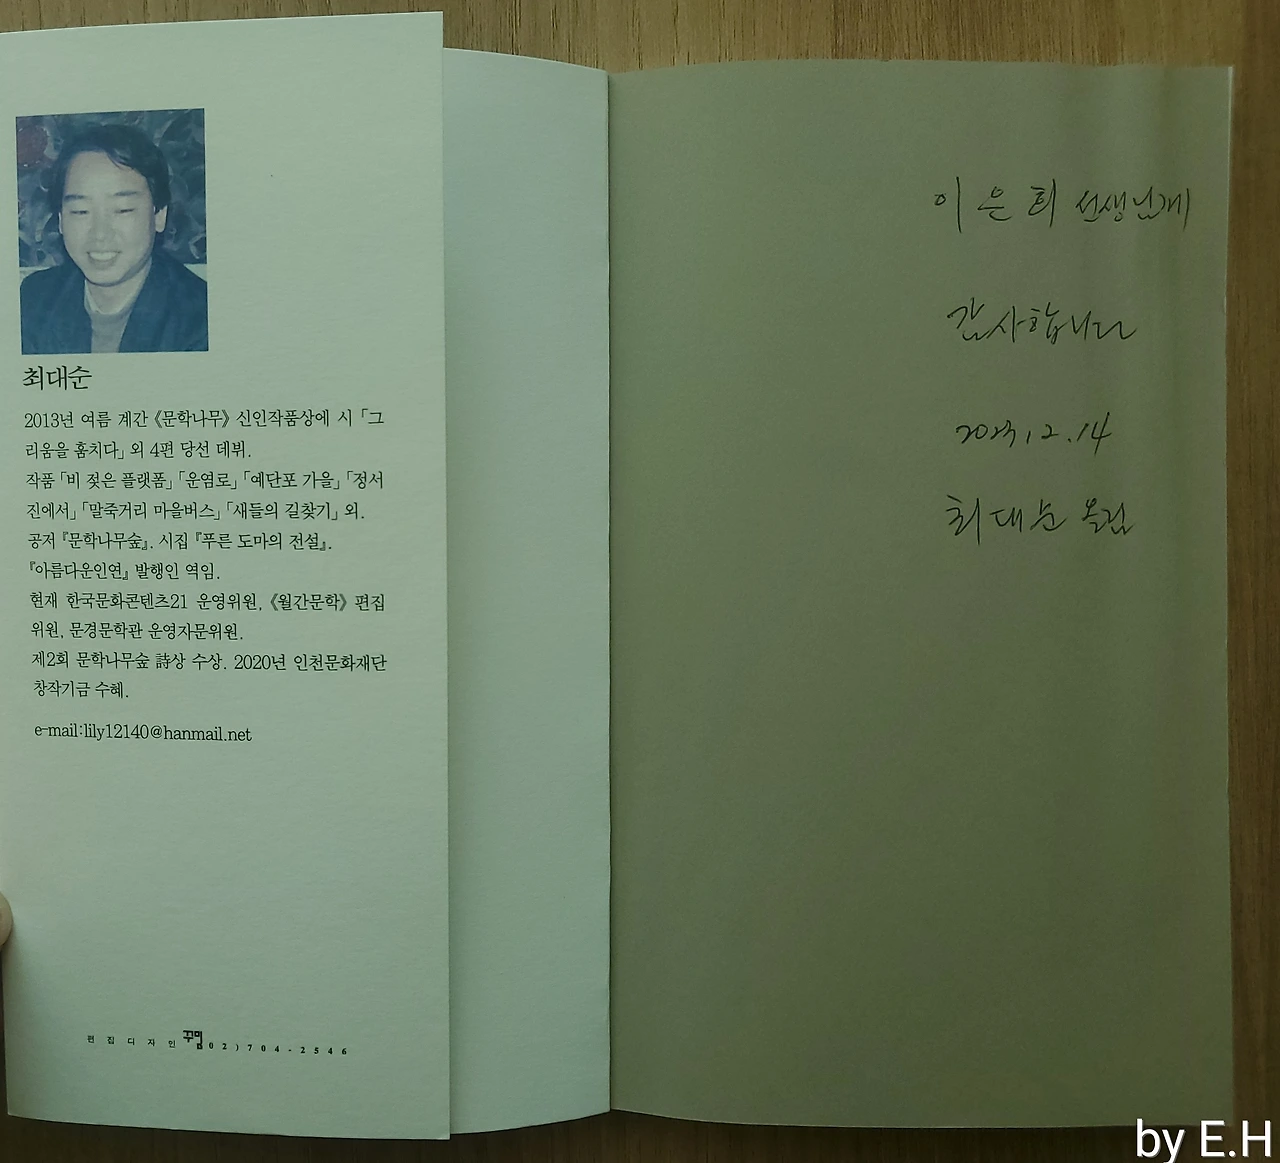 최대순
2013년 여름 계간 《문학나무》 신인작품상에 시 「그
리움을 훔치다」 외 4편 당선 데뷔.
작품 「비 젖은 플랫폼」 「운염로」 「예단포 가을」 「정서
진에서」 「말죽거리 마을버스」 「새들의 길찾기」 외.
공저 『문학나무숲』. 시집 『푸른 도마의 전설』.
『아름다운인연』 발행인 역임.
현재 한국문화콘텐츠21 운영위원, 《월간문학》 편집
위원, 문경문학관 운영자문위원.
제2회 문학나무숲 詩상 수상. 2020년 인천문화재단
창작기금 수혜.
e-mail:lily12140@hanmail.net
편집디자인 꾸밈 02)704-2546
이은희 선생님께
감사합니다
2023, 2. 14
최대순 올림
by E.H